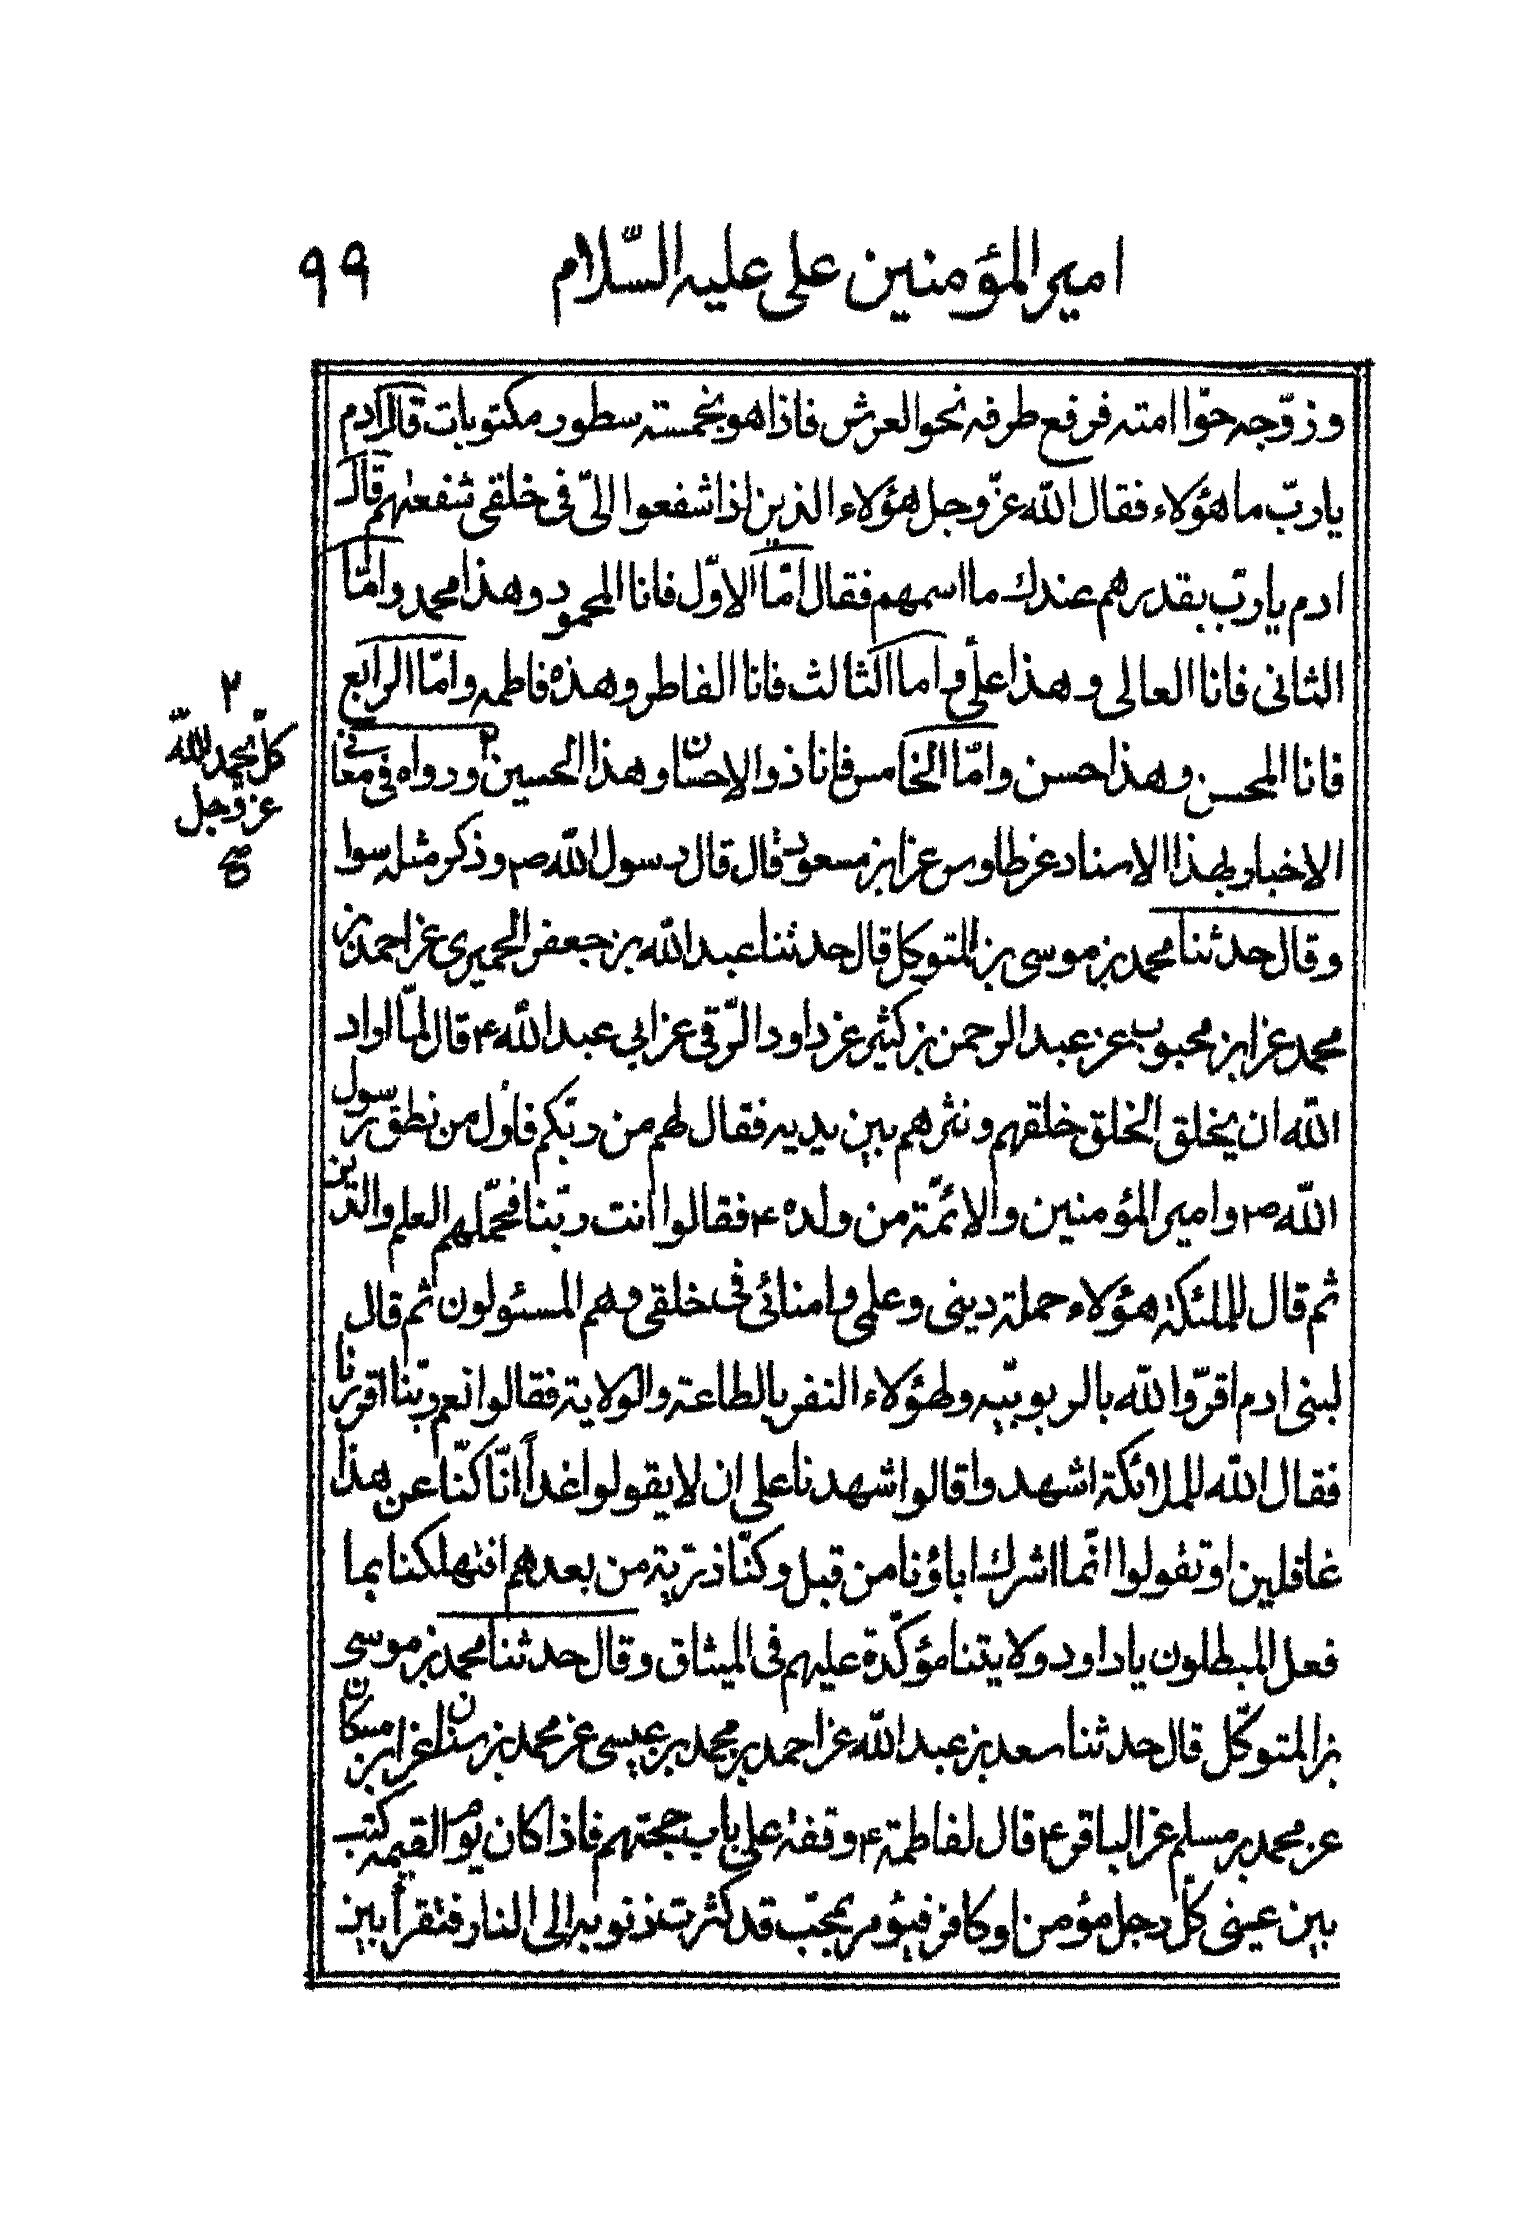 امير المؤمنين على عليه السّلام ٩٩
وزوّجه حوّا امته فرفع طرفه نحو العرش فاذا هو بخمسة سطور مكتوبات قال ادم
يا ربّ ما هؤلاء فقال الله عزّ وجل هؤلاء الذين اذا شفعوا الىّ فى خلقى شفعتهم قال
ادم يا ربّ بقدرهم عندك ما اسمهم فقال امّا الاوّل فانا المحمود وهذا محمد وامّا
الثانى فانا العالى وهذا على واما الثالث فانا الفاطر وهذه فاطمه وامّا الرابع
فانا المحسن وهذا حسن وامّا الخامس فانا ذو الاحسان وهذا الحسين ٢ ورواه فى معانى
٢
كلّ يحمد الله
عز وجل
صح
الاخبار بهذا الاسناد عن طاوس عن ابن مسعود قال قال رسول الله ص وذكر مثله سوا
وقال حدثنا محمد بن موسى بن المتوكل قال حدثنا عبد الله بن جعفر الحميرى عن احمد بن
محمد عن ابن محبوب عن عبد الرحمن بن كثير عن داود الرّقى عن ابي عبد الله ع قال لمّا اراد
الله ان يخلق الخلق خلقهم ونثرهم بين يديه فقال لهم من ربّكم فاول من نطق رسول
الله ص وامير المؤمنين والائمّة من ولده ع فقالوا انت ربّنا فحمّلهم العلم والدّين
ثم قال للملئكة هؤلاء حملة دينى وعلمى وامنائى فى خلقى وهم المسئولون ثم قال
لبنى ادم اقرّوا لله بالربوبيّه ولهؤلاء النفر بالطاعة والولاية فقالوا نعم ربّنا اقررنا
فقال الله للملائكة اشهدوا قالوا شهدنا على ان لا يقولوا غداً انّا كنّا عن هذا
غافلين او تقولوا انّما اشرك اباؤنا من قبل وكنّا ذرّية من بعدهم افتهلكنا بما
فعل المبطلون يا داود ولايتنا مؤكّدة عليهم فى الميثاق وقال حدثنا محمد بن موسى
بن المتوكّل قال حدثنا سعد بن عبد الله عن احمد بن محمد بن عيسى عن محمد بن سنان عن ابن مسكان
عن محمد بن مسلم عن الباقر ع قال لفاطمة ع وقفة على باب جهنم فاذا كان يوم القيمه كتب
بين عينى كلّ رجل مؤمن او كافر فيؤمر بمحبّ قد كثرت ذنوبه الى النار فتقرأ بين